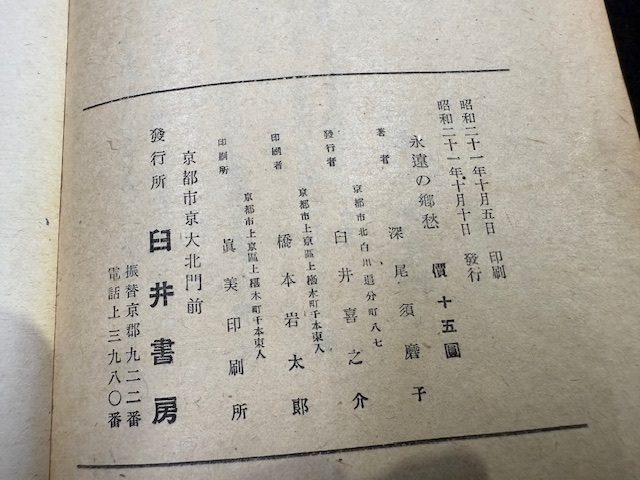 昭和二十一年十月五日 印刷
昭和二十一年十月十日 發行
永遠の鄕愁 價十五圓
著者 深尾須磨子
京都市北白川追分町八七
發行者 臼井喜之介
京都市上京區上椹木町千本東入
印刷者 橋本岩太郎
京都市上京區上椹木町千本東入
印刷所 眞美印刷所
京都市京大北門前
發行所 臼井書房
振替京都九二二番
電話上三九八〇番